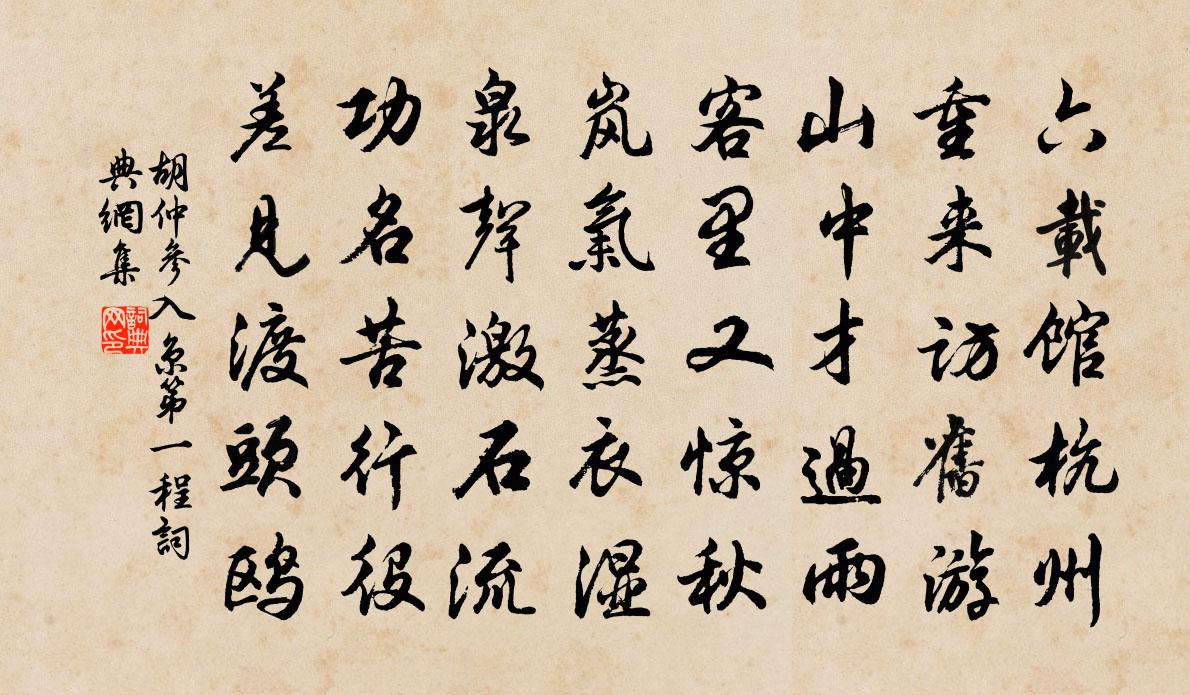 六載館杭州
重来访舊游
山中才過雨
客里又惊秋
岚氣蒸衣湿
泉聲激石流
功名苦行役
差見渡頭鸥
胡仲參入京第一程詞
典網集
詞典
网印